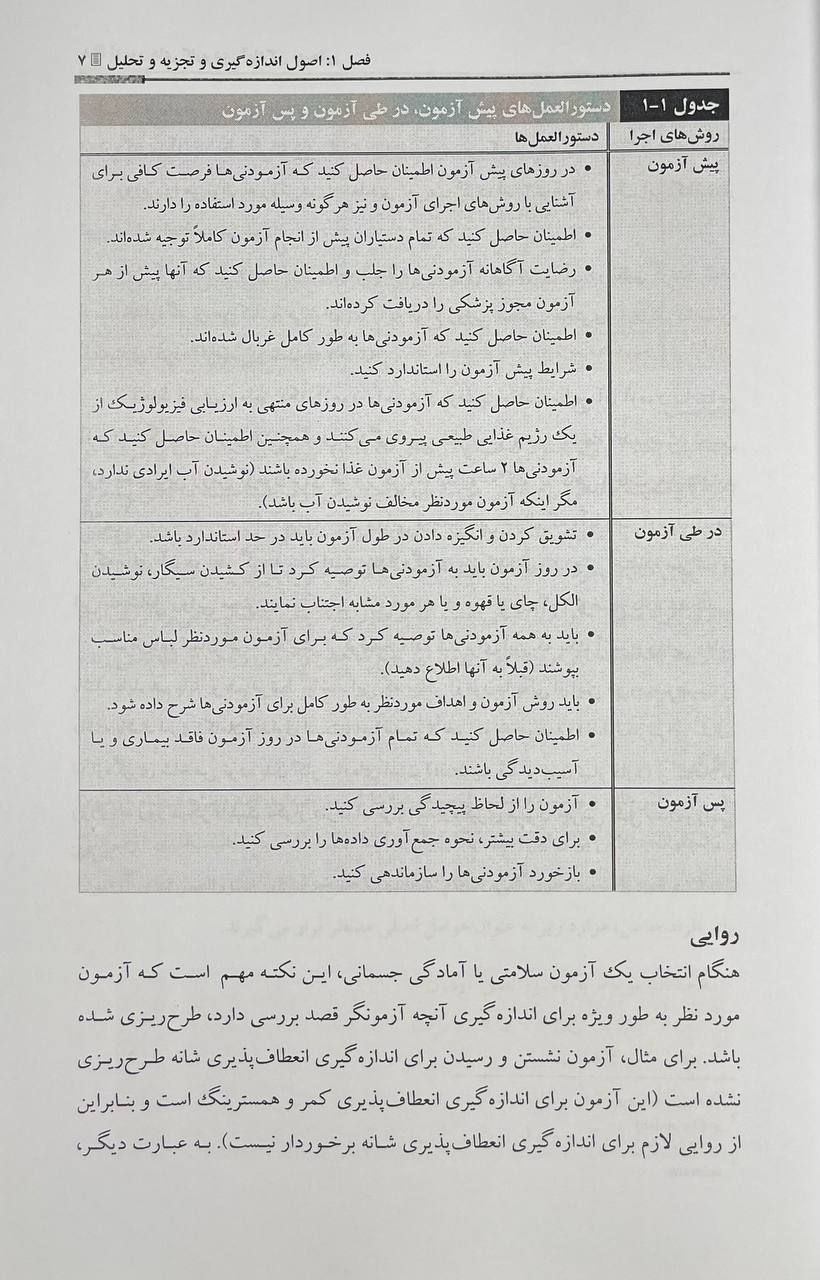 فصل ۱: اصول اندازه‌گیری و تجزیه و تحلیل ۷
جدول ۱-۱ دستورالعمل‌های پیش آزمون، در طی آزمون و پس آزمون
روش‌های اجرا دستورالعمل‌ها
پیش آزمون • در روزهای پیش آزمون اطمینان حاصل کنید که آزمودنی‌ها فرصت کافی برای
آشنایی با روش‌های اجرای آزمون و نیز هرگونه وسیله مورد استفاده را دارند.
• اطمینان حاصل کنید که تمام دستیاران پیش از انجام آزمون کاملاً توجیه شده‌اند.
• رضایت آگاهانه آزمودنی‌ها را جلب و اطمینان حاصل کنید که آنها پیش از هر
آزمون مجوز پزشکی را دریافت کرده‌اند.
• اطمینان حاصل کنید که آزمودنی‌ها به طور کامل غربال شده‌اند.
• شرایط پیش آزمون را استاندارد کنید.
• اطمینان حاصل کنید که آزمودنی‌ها در روزهای منتهی به ارزیابی فیزیولوژیک از
یک رژیم غذایی طبیعی پیروی می‌کنند و همچنین اطمینان حاصل کنید که
آزمودنی‌ها ۲ ساعت پیش از آزمون غذا نخورده باشند (نوشیدن آب ایرادی ندارد،
مگر اینکه آزمون موردنظر مخالف نوشیدن آب باشد).
در طی آزمون • تشویق کردن و انگیزه دادن در طول آزمون باید در حد استاندارد باشد.
• در روز آزمون باید به آزمودنی‌ها توصیه کرد تا از کشیدن سیگار، نوشیدن
الکل، چای یا قهوه و یا هر مورد مشابه اجتناب نمایند.
• باید به همه آزمودنی‌ها توصیه کرد که برای آزمون موردنظر لباس مناسب
بپوشند (قبلاً به آنها اطلاع دهید).
• باید روش آزمون و اهداف موردنظر به طور کامل برای آزمودنی‌ها شرح داده شود.
• اطمینان حاصل کنید که تمام آزمودنی‌ها در روز آزمون فاقد بیماری و یا
آسیب‌دیدگی باشند.
پس آزمون • آزمون را از لحاظ پیچیدگی بررسی کنید.
• برای دقت بیشتر، نحوه جمع‌آوری داده‌ها را بررسی کنید.
• بازخورد آزمودنی‌ها را سازماندهی کنید.
روایی
هنگام انتخاب یک آزمون سلامتی یا آمادگی جسمانی، این نکته مهم است که آزمون
مورد نظر به طور ویژه برای اندازه‌گیری آنچه آزمونگر قصد بررسی دارد، طرح‌ریزی شده
باشد. برای مثال، آزمون نشستن و رسیدن برای اندازه‌گیری انعطاف‌پذیری شانه طرح‌ریزی
نشده است (این آزمون برای اندازه‌گیری انعطاف‌پذیری کمر و همسترینگ است و بنابراین
از روایی لازم برای اندازه‌گیری انعطاف‌پذیری شانه برخوردار نیست). به عبارت دیگر،